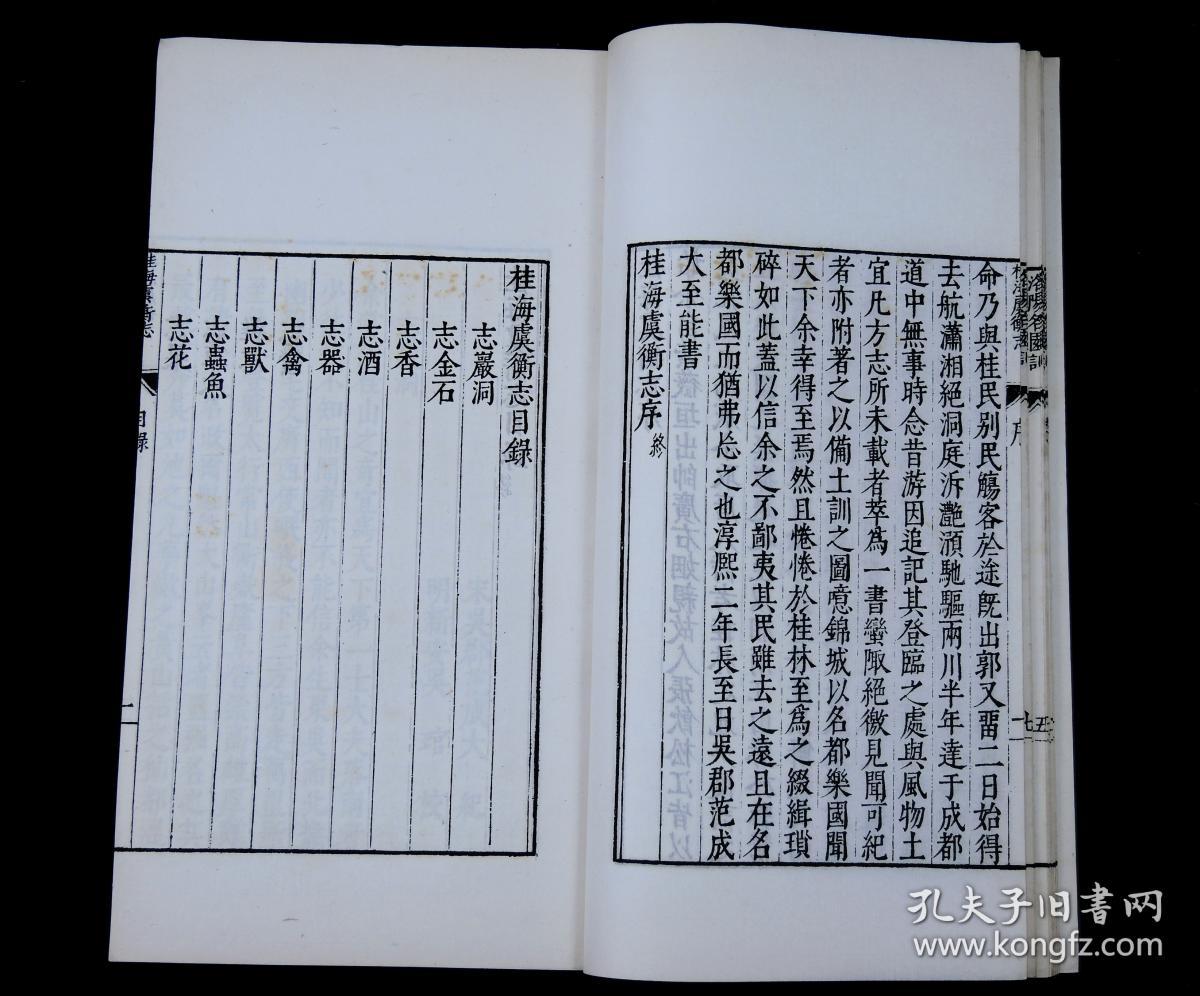 命乃與桂民别民觴客於途旣出郭又畱二日始得
去航瀟湘絕洞庭泝灩澦馳驅兩川半年達于成都
道中無事時念昔游因追記其登臨之處與風物土
宜凡方志所未載者萃爲一書蠻陬絕徼見聞可紀
者亦附著之以備土訓之圖噫錦城以名都樂國聞
天下余幸得至焉然且惓惓於桂林至爲之綴緝瑣
碎如此蓋以信余之不鄙夷其民雖去之遠且在名
都樂國而猶弗忘之也淳熙二年長至日吳郡范成
大至能書
桂海虞衡志序 終
桂海虞衡志目錄
志巖洞
志金石
志香
志酒
志器
志禽
志獸
志蟲魚
志花
桂海虞衡志
目錄
一
序
孔夫子旧書网
www.kongfz.com